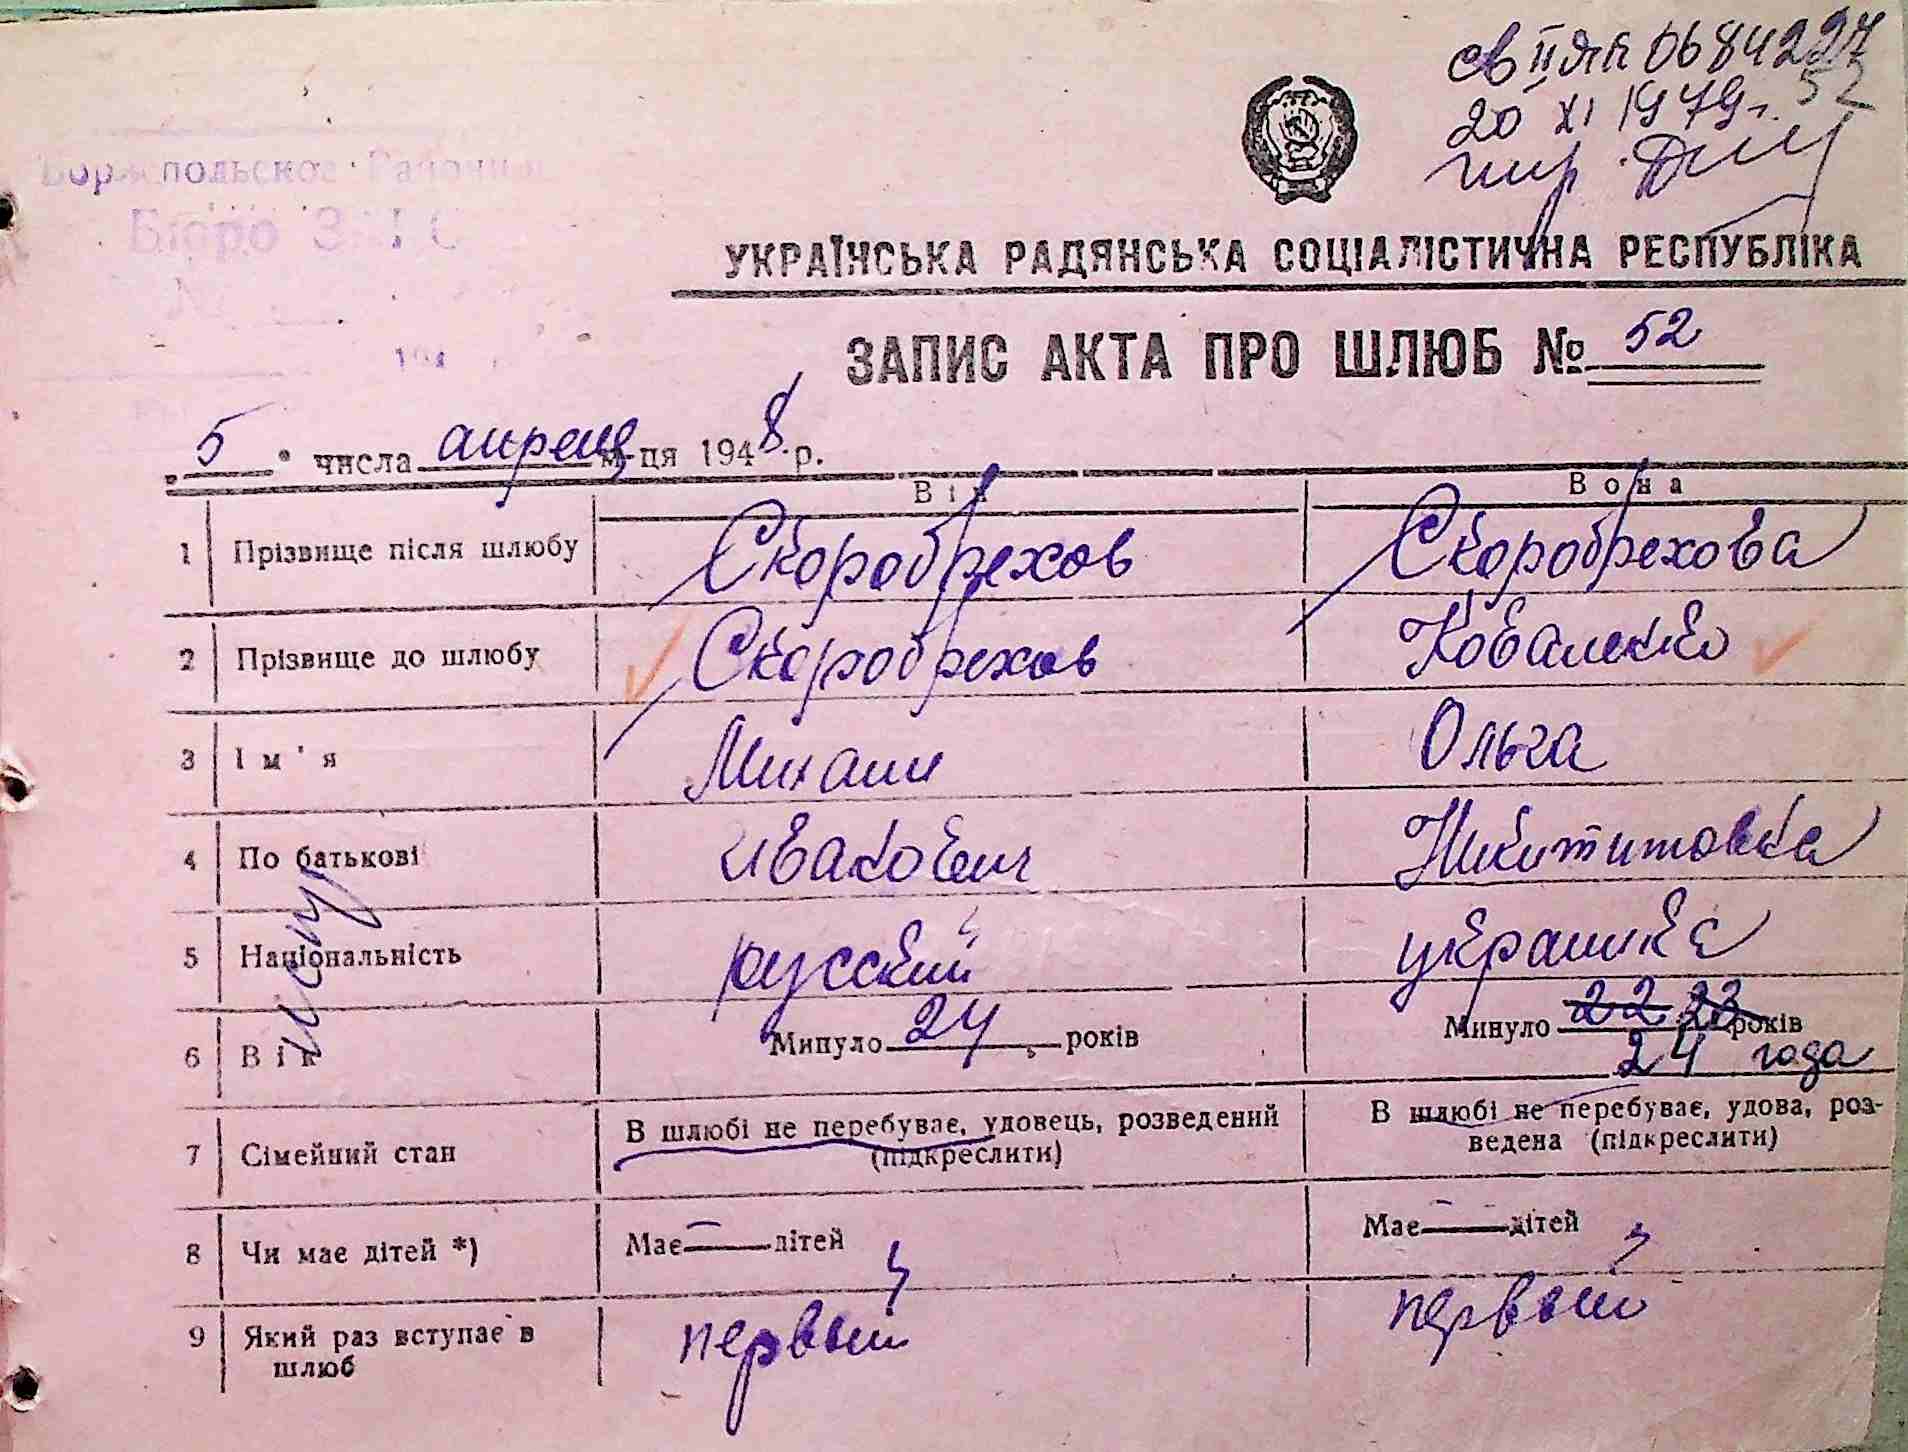 св II ЯПК 0684227
52
20 XI 1979г.
Бориспольское Районное
Бюро ЗАГС
№
194
УКРАЇНСЬКА РАДЯНСЬКА СОЦІАЛІСТИЧНА РЕСПУБЛІКА
ЗАПИС АКТА ПРО ШЛЮБ № 52
„5“ числа апреля м-ця 1948 р.
Він Вона
1 Прізвище після шлюбу Скоробрехов Скоробрехова
2 Прізвище до шлюбу Скоробрехов Коваленко
3 Ім'я Михаил Ольга
4 По батькові Иванович Никититовна
5 Національність русский украинка
6 Вік Минуло 24 років Минуло 22 23 років
24 года
испр
7 Сімейний стан В шлюбі не перебуває, удовець, розведений (підкреслити) В шлюбі не перебуває, удова, роз-
ведена (підкреслити)
8 Чи має дітей *) Має — дітей Має — дітей
9 Який раз вступає в первый первый
шлюб